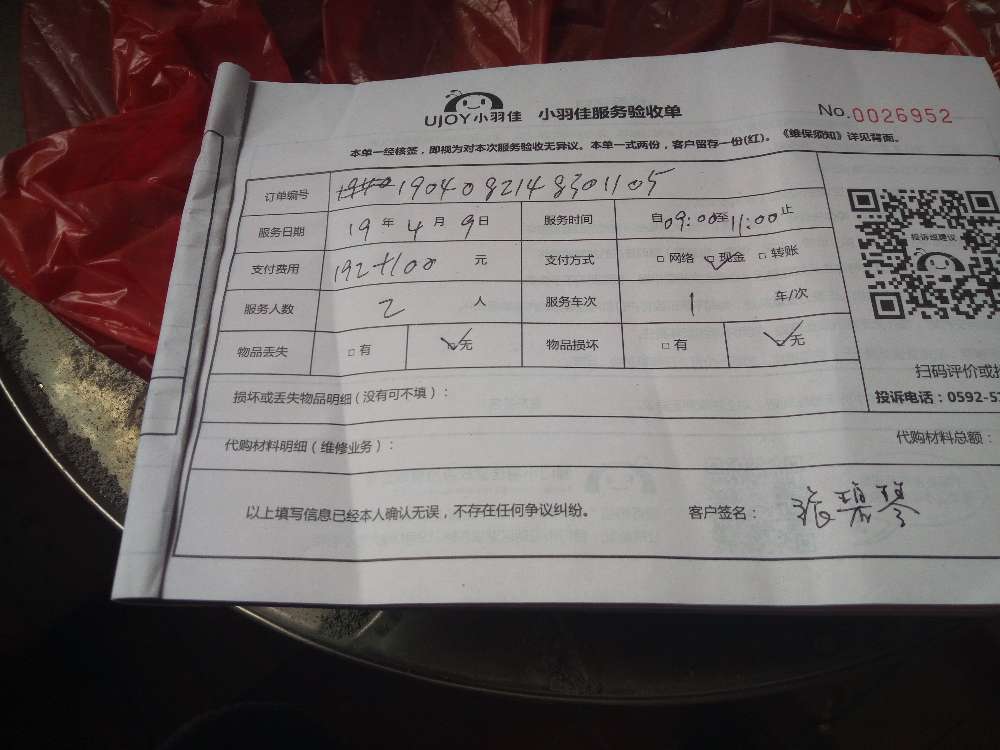 UJOY小羽佳 小羽佳服务验收单 No.0026952
本单一经核签，即视为对本次服务验收无异议。本单一式两份，客户留存一份(红)。《维保须知》详见背面。
订单编号 1904082148301105
服务日期 19年4月9日 服务时间 自09:00至11:00止
支付费用 192+100 元 支付方式 □网络 ☑现金 □转账
服务人数 2 人 服务车次 1 车/次
物品丢失 □有 ☑无 物品损坏 □有 ☑无
投诉或建议
扫码评价或
损坏或丢失物品明细（没有可不填）：
投诉电话：0592-5
代购材料明细（维修业务）： 代购材料总额：
以上填写信息已经本人确认无误，不存在任何争议纠纷。 客户签名： 张碧琴